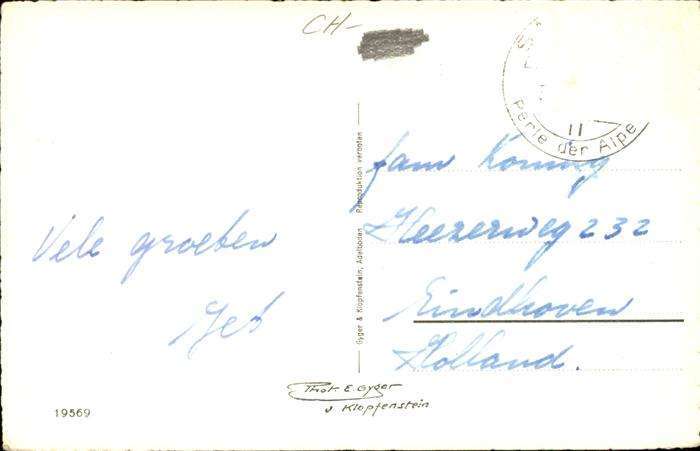 CH-
Perle der Alpe
II
Vele groeten
Jet
Fam Koning
Heezerweg 232
Eindhoven
Holland.
Gyger & Klopfenstein, Adelboden Reproduktion verboten
Phot. E. Gyger
u Klopfenstein
19569